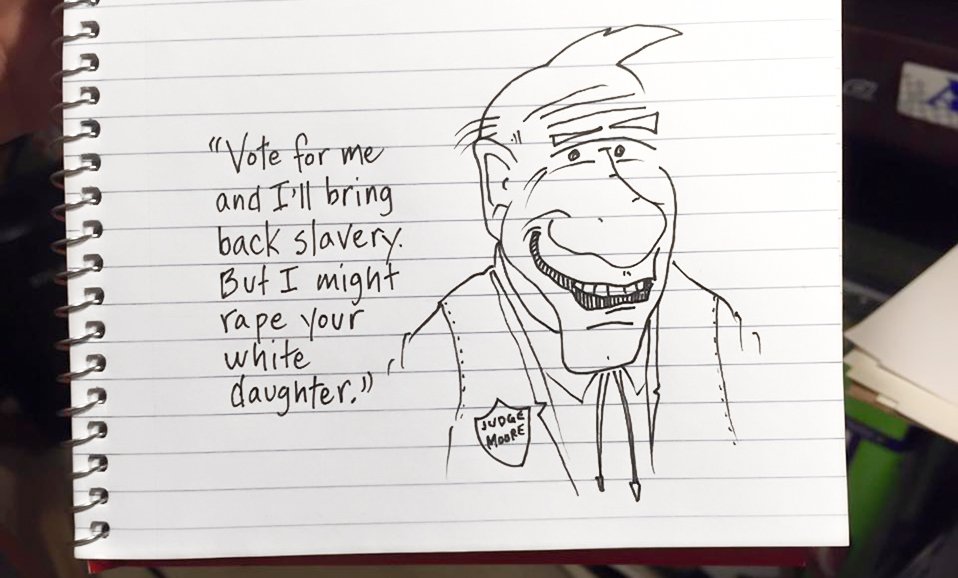 "Vote for me
and I'll bring
back slavery.
But I might
rape your
white
daughter."
JUDGE
MOORE